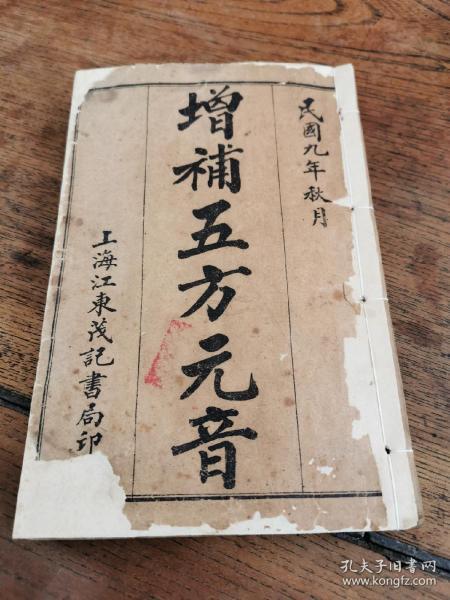 民國九年秋月
增補五方元音
上海江東茂記書局印
孔夫子旧书网
www.kongfz.com